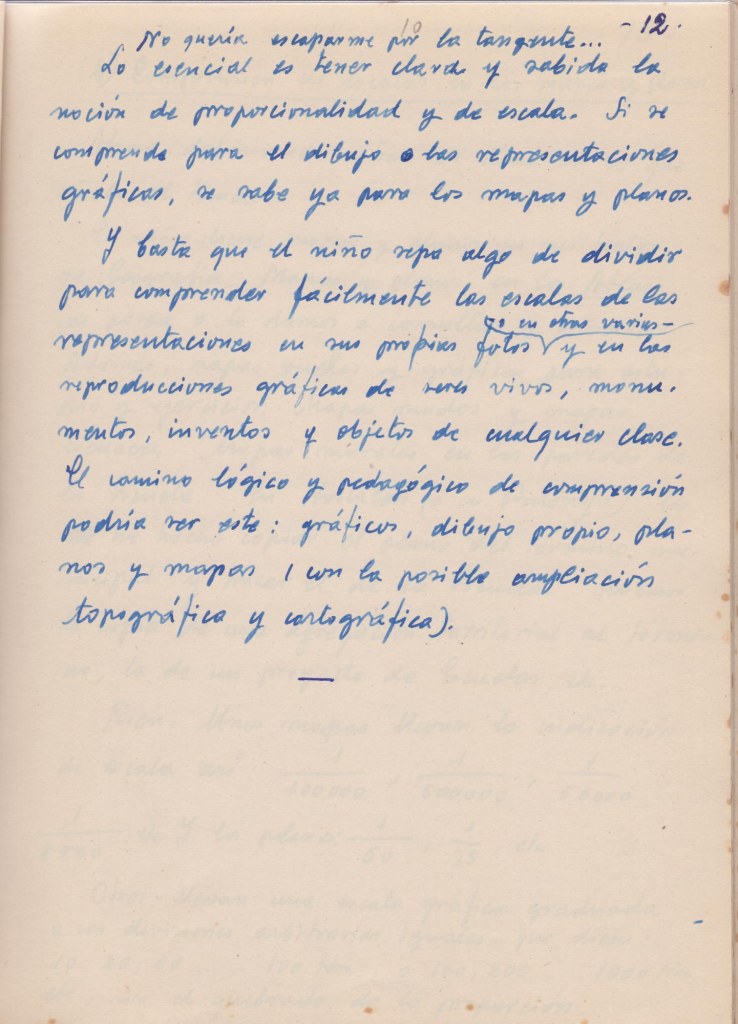 10
- 12.
No quería escaparme por la tangente...
Lo esencial es tener clara y sabida la
noción de proporcionalidad y de escala. Si se
comprende para el dibujo o las representaciones
gráficas, se sabe ya para los mapas y planos.
Y basta que el niño sepa algo de dividir
para comprender facilmente las escalas de las
representaciones en sus propias fotos y en las
en otras varias-
reproducciones gráficas de seres vivos, monu-
mentos, inventos y objetos de cualquier clase.
El camino lógico y pedagógico de comprensión
podría ser éste: gráficos, dibujo propio, pla-
nos y mapas (con la posible ampliación
topográfica y cartográfica).